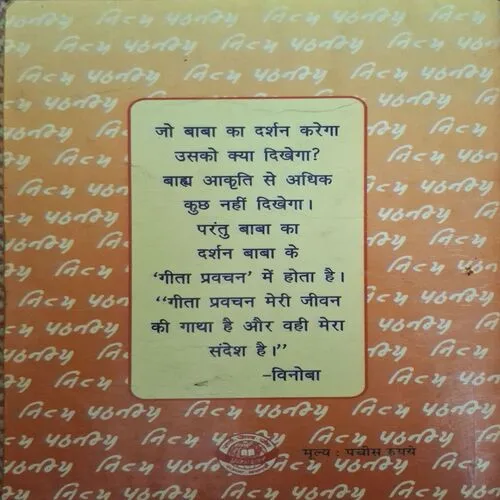 जो बाबा का दर्शन करेगा
उसको क्या दिखेगा?
बाह्य आकृति से अधिक
कुछ नहीं दिखेगा।
परंतु बाबा का
दर्शन बाबा के
‘गीता प्रवचन’ में होता है।
‘‘गीता प्रवचन मेरी जीवन
की गाथा है और वही मेरा
संदेश है।’’
–विनोबा
मूल्य : पच्चीस रुपये